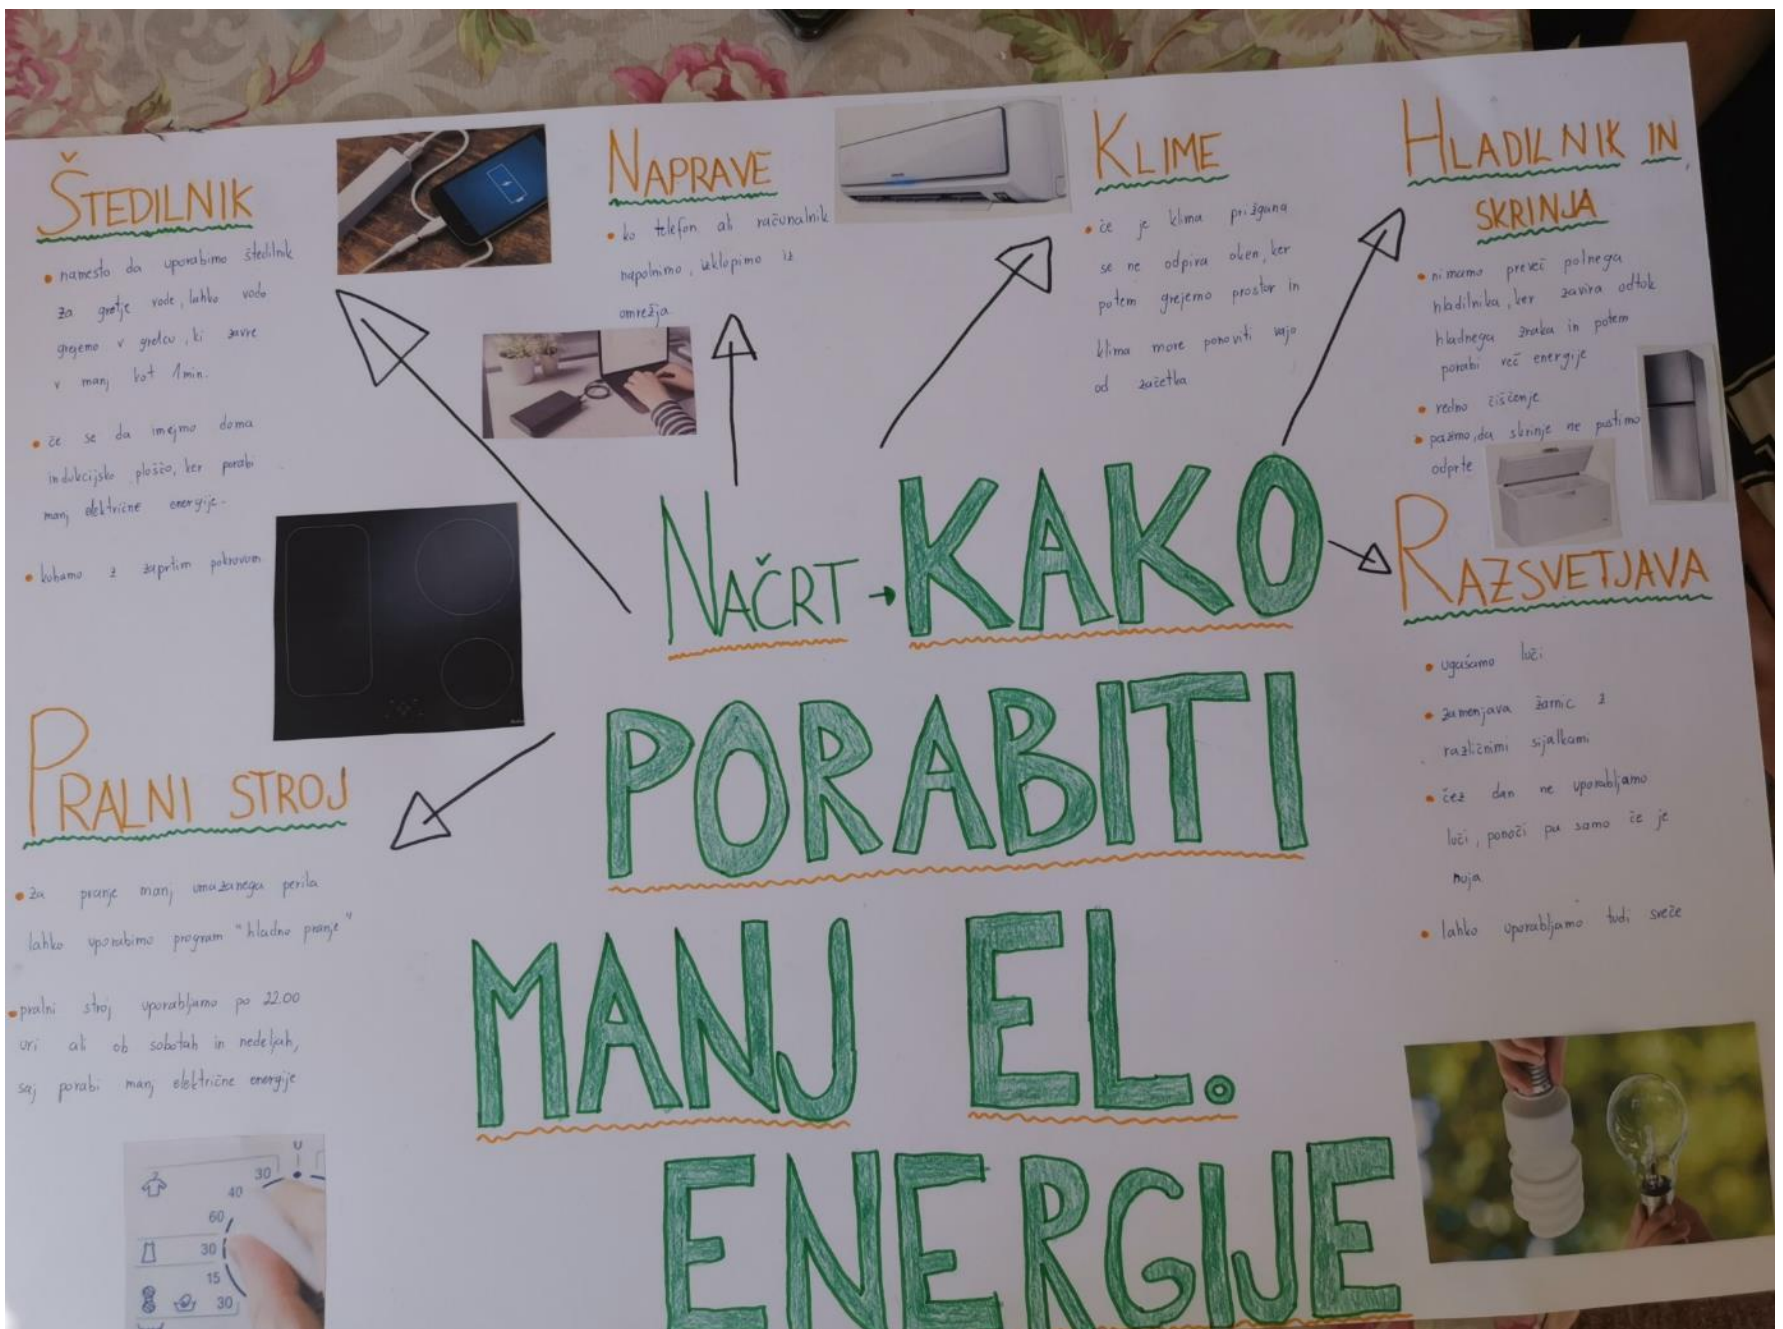 ŠTEDILNIK
• namesto da uporabimo štedilnik
za gretje vode, lahko vodo
grejemo v grelcu, ki zavre
v manj kot 1 min.
• če se da imejmo doma
indukcijsko ploščo, ker porabi
manj električne energije.
• kuhamo z zaprtim pokrovom
NAPRAVE
• ko telefon ali računalnik
napolnimo, izklopimo iz
omrežja
KLIME
• če je klima prižgana
se ne odpira oken, ker
potem grejemo prostor in
klima more ponoviti vajo
od začetka
HLADILNIK IN
SKRINJA
• nimamo preveč polnega
hladilnika, ker zavira odtok
hladnega zraka in potem
porabi več energije
• redno čiščenje
• pazimo, da skrinje ne pustimo
odprte
NAČRT → KAKO
PORABITI
MANJ EL.
ENERGIJE
RAZSVETJAVA
• ugašamo luči
• zamenjava žarnic z
različnimi sijalkami
• čez dan ne uporabljamo
luči, ponoči pa samo če je
nuja
• lahko uporabljamo tudi sveče
PRALNI STROJ
• za pranje manj umazanega perila
lahko uporabimo program "hladno pranje"
• pralni stroj uporabljamo po 22.00
uri ali ob sobotah in nedeljah,
saj porabi manj električne energije
30
40
60
30
15
30